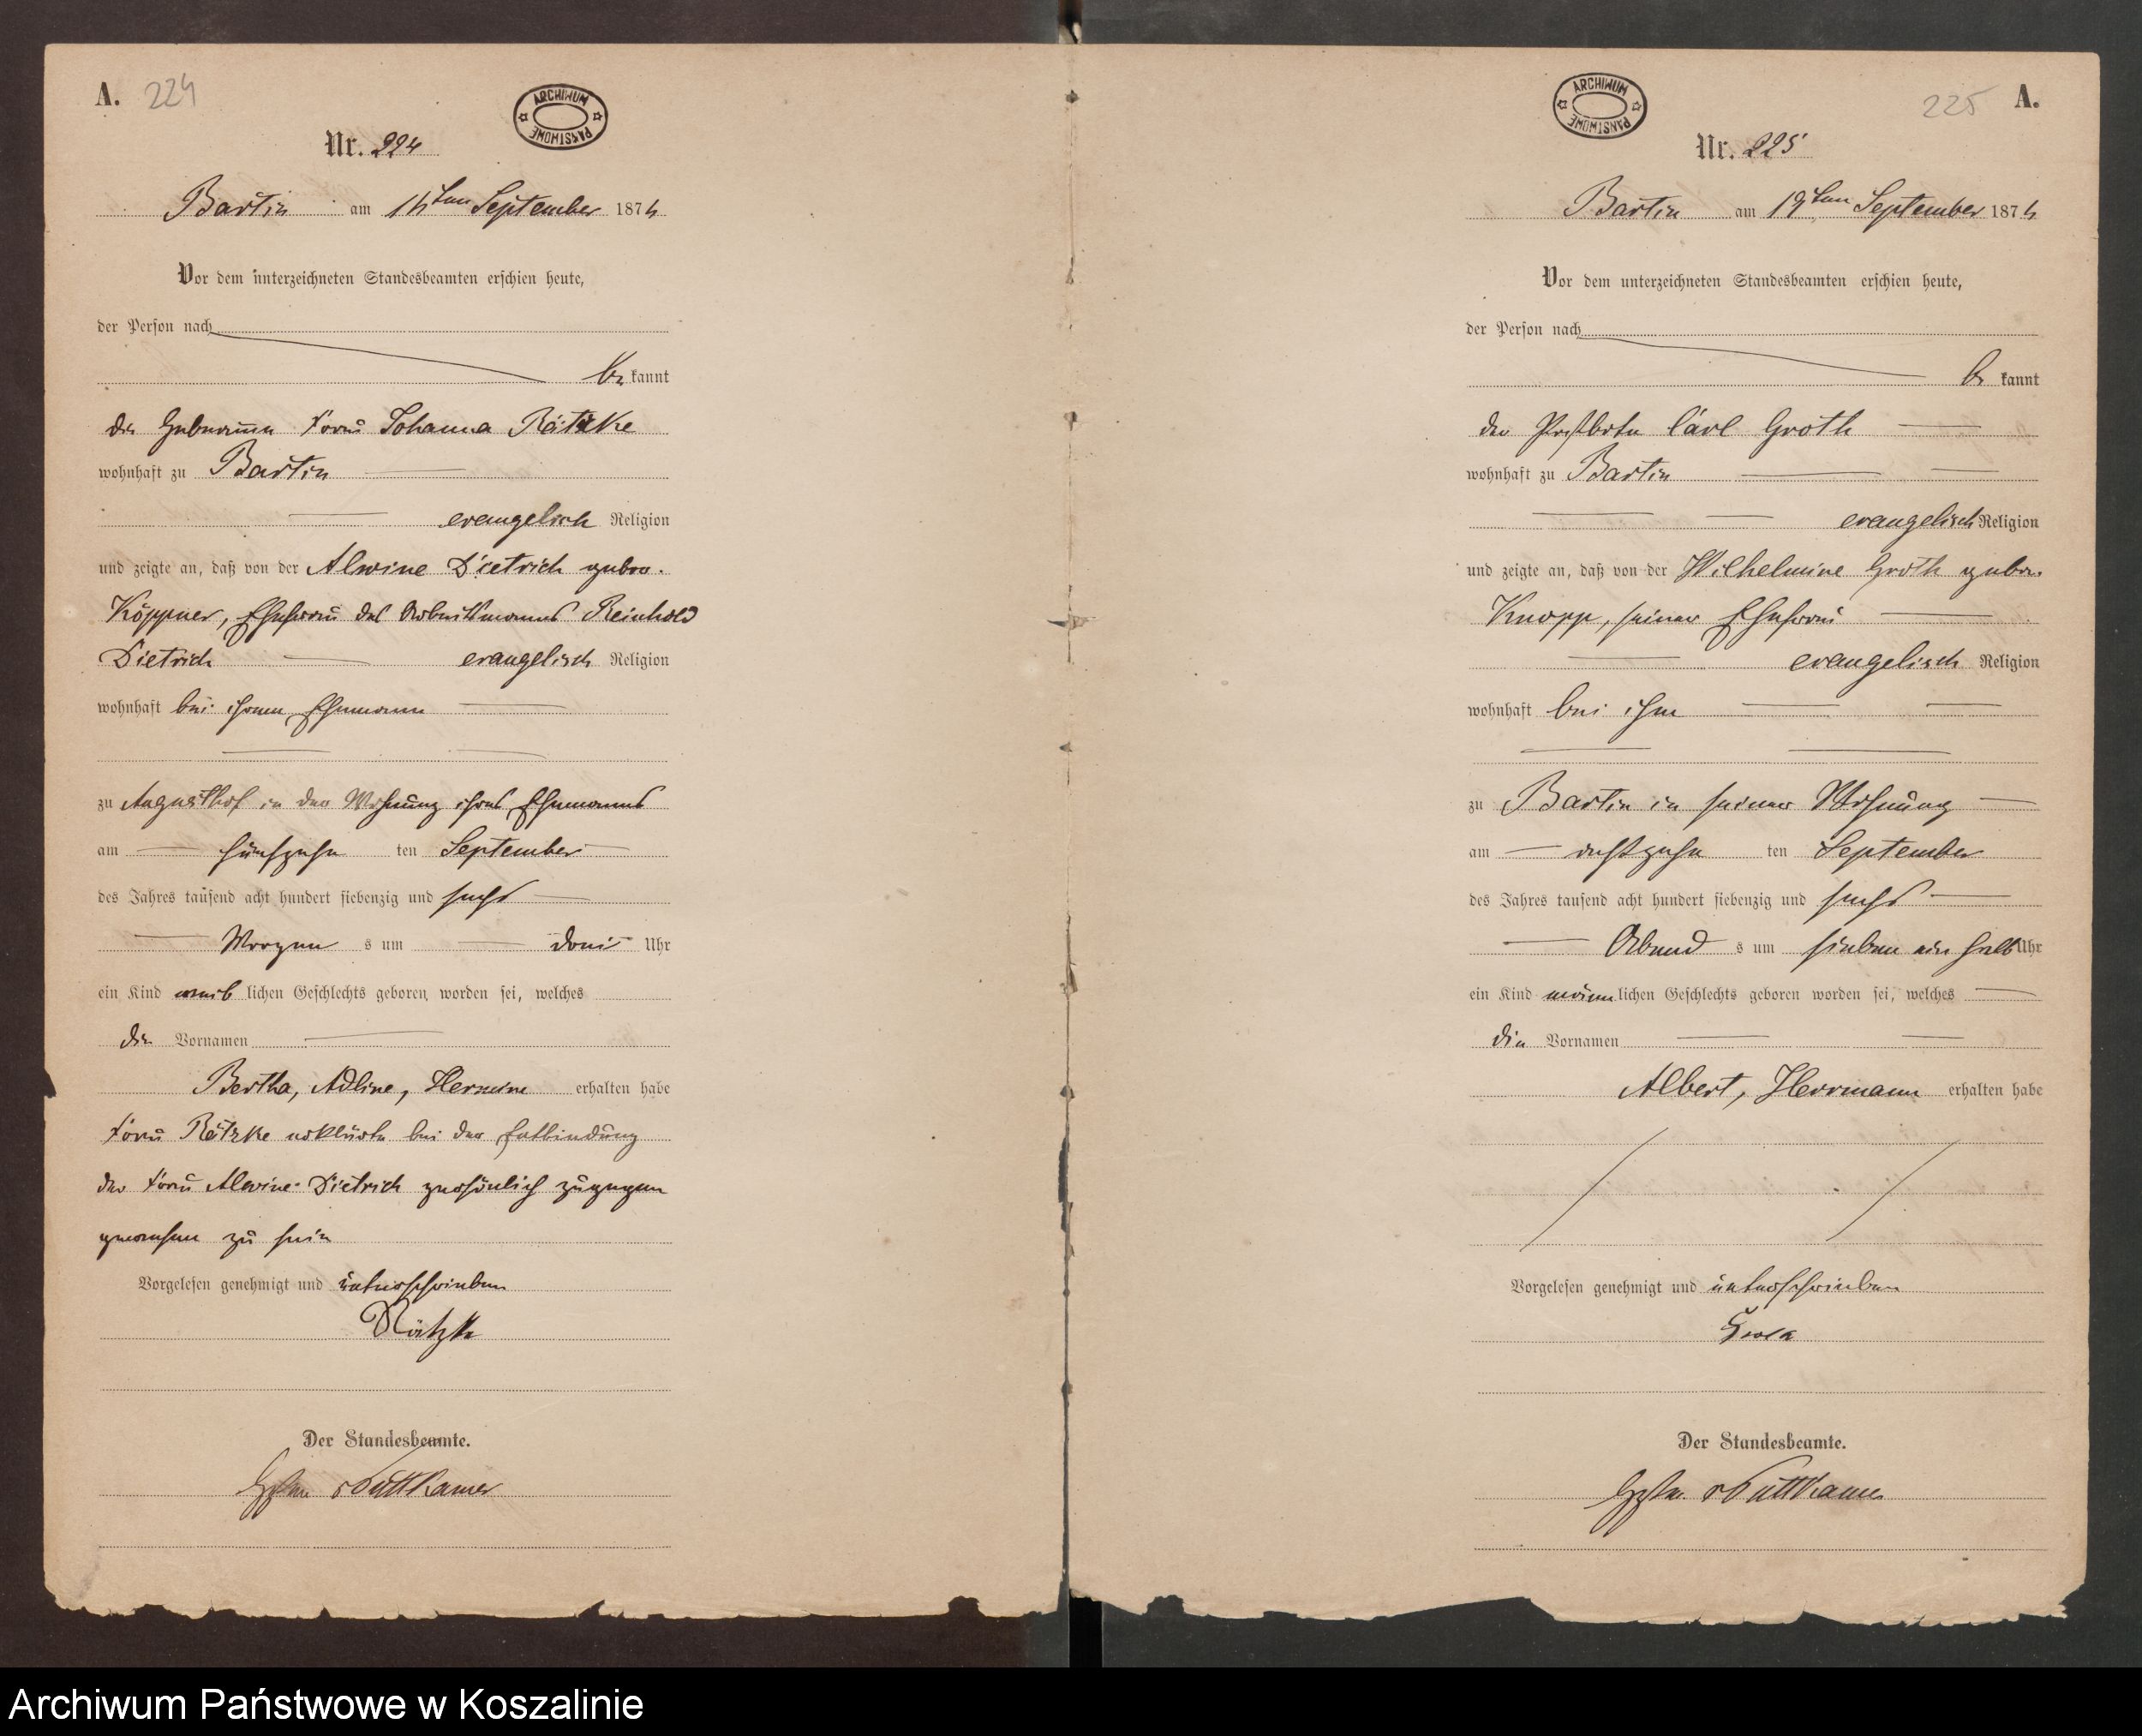 A. 224
ARCHIWUM PAŃSTWOWE
Nr. 224
Bartin am 16ten September 1876
Vor dem unterzeichneten Standesbeamten erschien heute,
der Person nach
be kannt
die Hebamme Frau Johanna Rätzke
wohnhaft zu Bartin
evangelisch Religion
und zeigte an, daß von der Alwine Dietrich gebor.
Köppner, Ehefrau des Arbeitsmanns Reinhold
Dietrich evangelisch Religion
wohnhaft bei ihrem Ehemann
zu Augusthof in der Wohnung ihres Ehemanns
am fünfzehn ten September
des Jahres tausend acht hundert siebenzig und sechs
Morgen s um drei Uhr
ein Kind weib lichen Geschlechts geboren worden sei, welches
die Vornamen
Bertha, Adline, Hermine erhalten habe
Frau Rätzke erklärte bei der Entbindung
der Frau Alwine Dietrich persönlich zugegen
gewesen zu sein
Vorgelesen genehmigt und unterschrieben
Rätzke
Der Standesbeamte.
Puttkamer
225 A.
ARCHIWUM PAŃSTWOWE
Nr. 225
Bartin am 19ten September 1876
Vor dem unterzeichneten Standesbeamten erschien heute,
der Person nach
be kannt
der Postbote Carl Groth
wohnhaft zu Bartin
evangelisch Religion
und zeigte an, daß von der Wilhelmine Groth gebor.
Knopp, seiner Ehefrau
evangelisch Religion
wohnhaft bei ihm
zu Bartin in seiner Wohnung
am achtzehn ten September
des Jahres tausend acht hundert siebenzig und sechs
Abend s um sieben ein halb Uhr
ein Kind männ lichen Geschlechts geboren worden sei, welches
die Vornamen
Albert, Herrmann erhalten habe
Vorgelesen genehmigt und unterschrieben
Der Standesbeamte.
Puttkamer
Archiwum Państwowe w Koszalinie